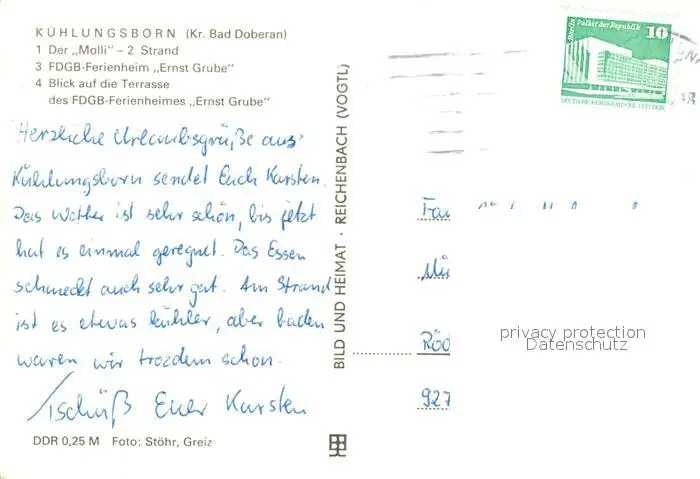 KÜHLUNGSBORN (Kr. Bad Doberan)
1 Der „Molli" – 2 Strand
3 FDGB-Ferienheim „Ernst Grube"
4 Blick auf die Terrasse
des FDGB-Ferienheimes „Ernst Grube"
Herzliche Urlaubsgrüße aus
Kühlungsborn sendet Euch Karsten.
Das Wetter ist sehr schön, bis jetzt
hat es einmal geregnet. Das Essen
schmeckt auch sehr gut. Am Strand
ist es etwas kühler, aber baden
waren wir trozdem schon.
Tschüß Euer Karsten
DDR 0,25 M Foto: Stöhr, Greiz
BILD UND HEIMAT · REICHENBACH (VOGTL)
Berlin Palast der Republik 10
DEUTSCHE DEMOKRATISCHE REPUBLIK
Röd
927
privacy protection
Datenschutz